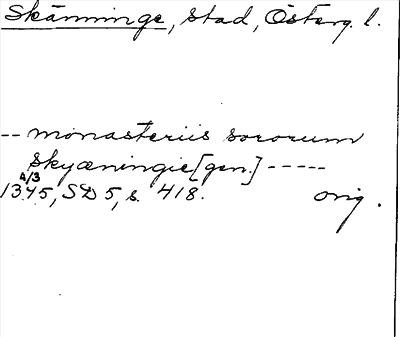 Skänninge, stad, Österg. l.
-- monasteriis sororum
Skyæningie [gen.] -----
4/3
1345, SD 5, s. 418. orig.